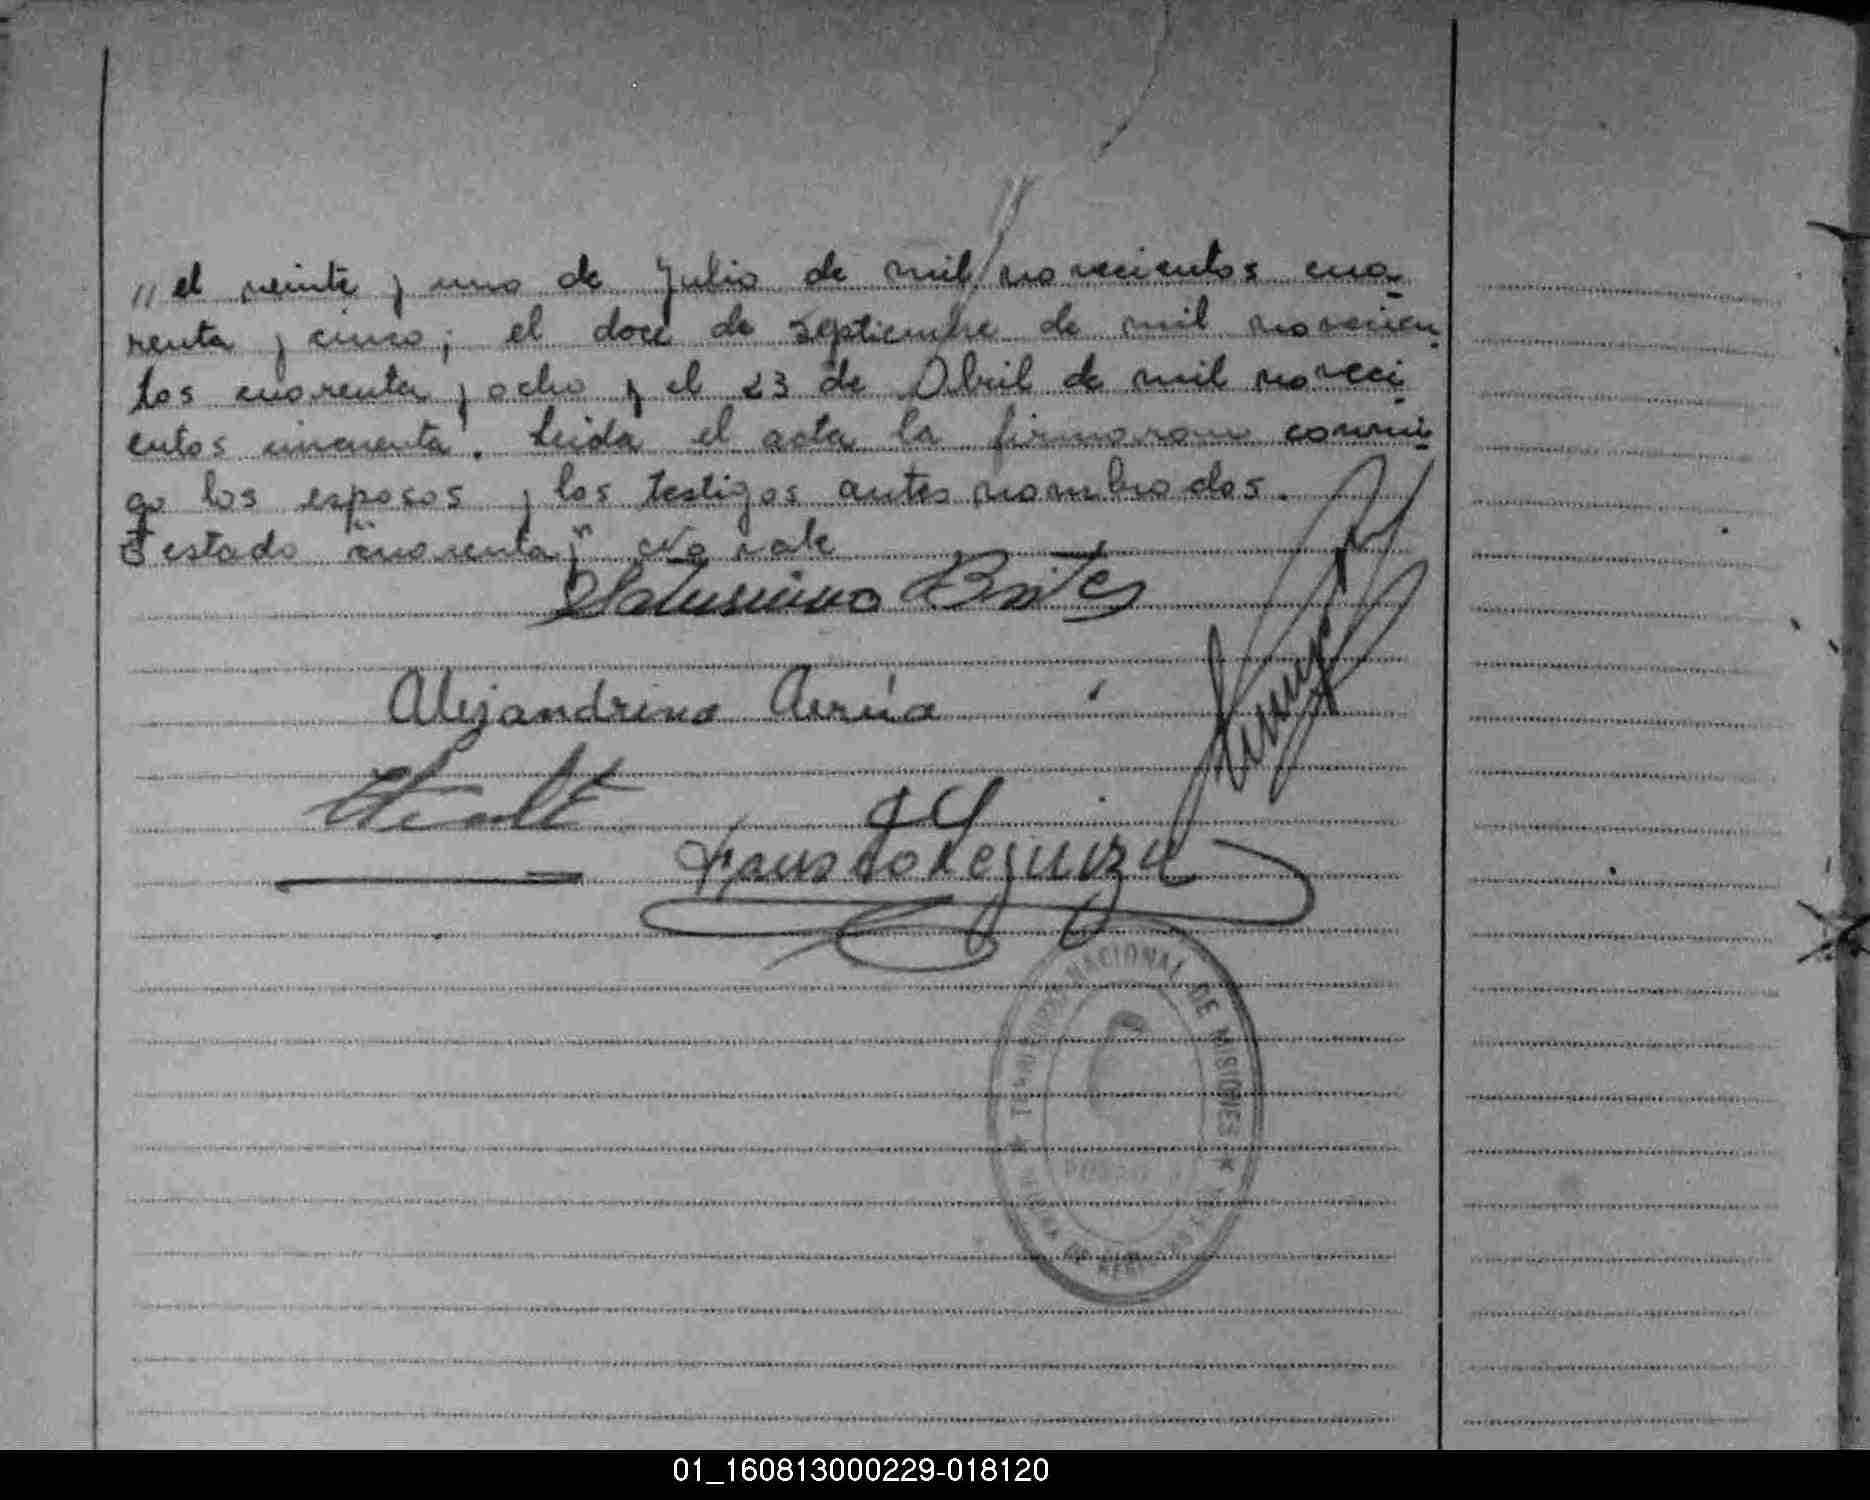 // el veinte y uno de Julio de mil novecientos cua-
renta y cinco; el doce de Septiembre de mil novecien-
tos cuarenta y ocho y el 23 de Abril de mil noveci-
entos cincuenta. Leida el acta la firmaron conmi-
go los esposos y los testigos antes nombrados.
Testado "cuarenta y" No vale
Saturnino Brites
Alejandrina Acruia
Fausto Leguiza
NACIONAL DE MISIONES
01_160813000229-018120